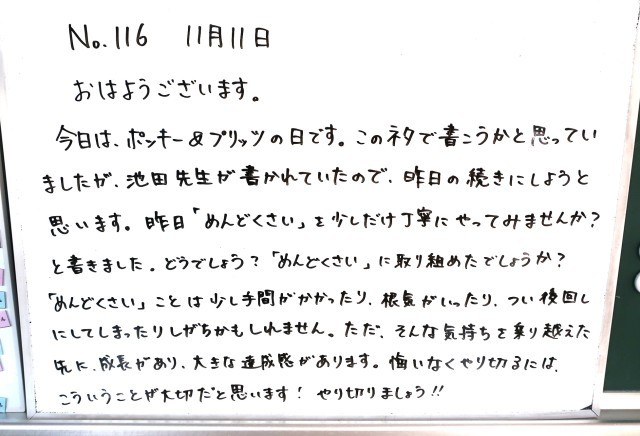 No.116 11月11日
おはようございます。
今日は、ポッキー&プリッツの日です。このネタで書こうかと思ってい
ましたが、池田先生が書かれていたので、昨日の続きにしようと
思います。昨日「めんどくさい」を少しだけ丁寧にやってみませんか?
と書きました。どうでしょう?「めんどくさい」に取り組めたでしょうか?
「めんどくさい」ことは少し手間がかかったり、根気がいったり、つい後回し
にしてしまったりしがちかもしれません。ただ、そんな気持ちを乗り越えた
先に、成長があり、大きな達成感があります。悔いなくやり切るには、
こういうことが大切だと思います!やり切りましょう!!